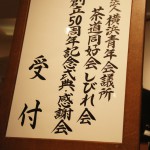 法人 横浜青年会議所
茶道同好会しびれ会
創立50周年記念式典、感謝会
受付